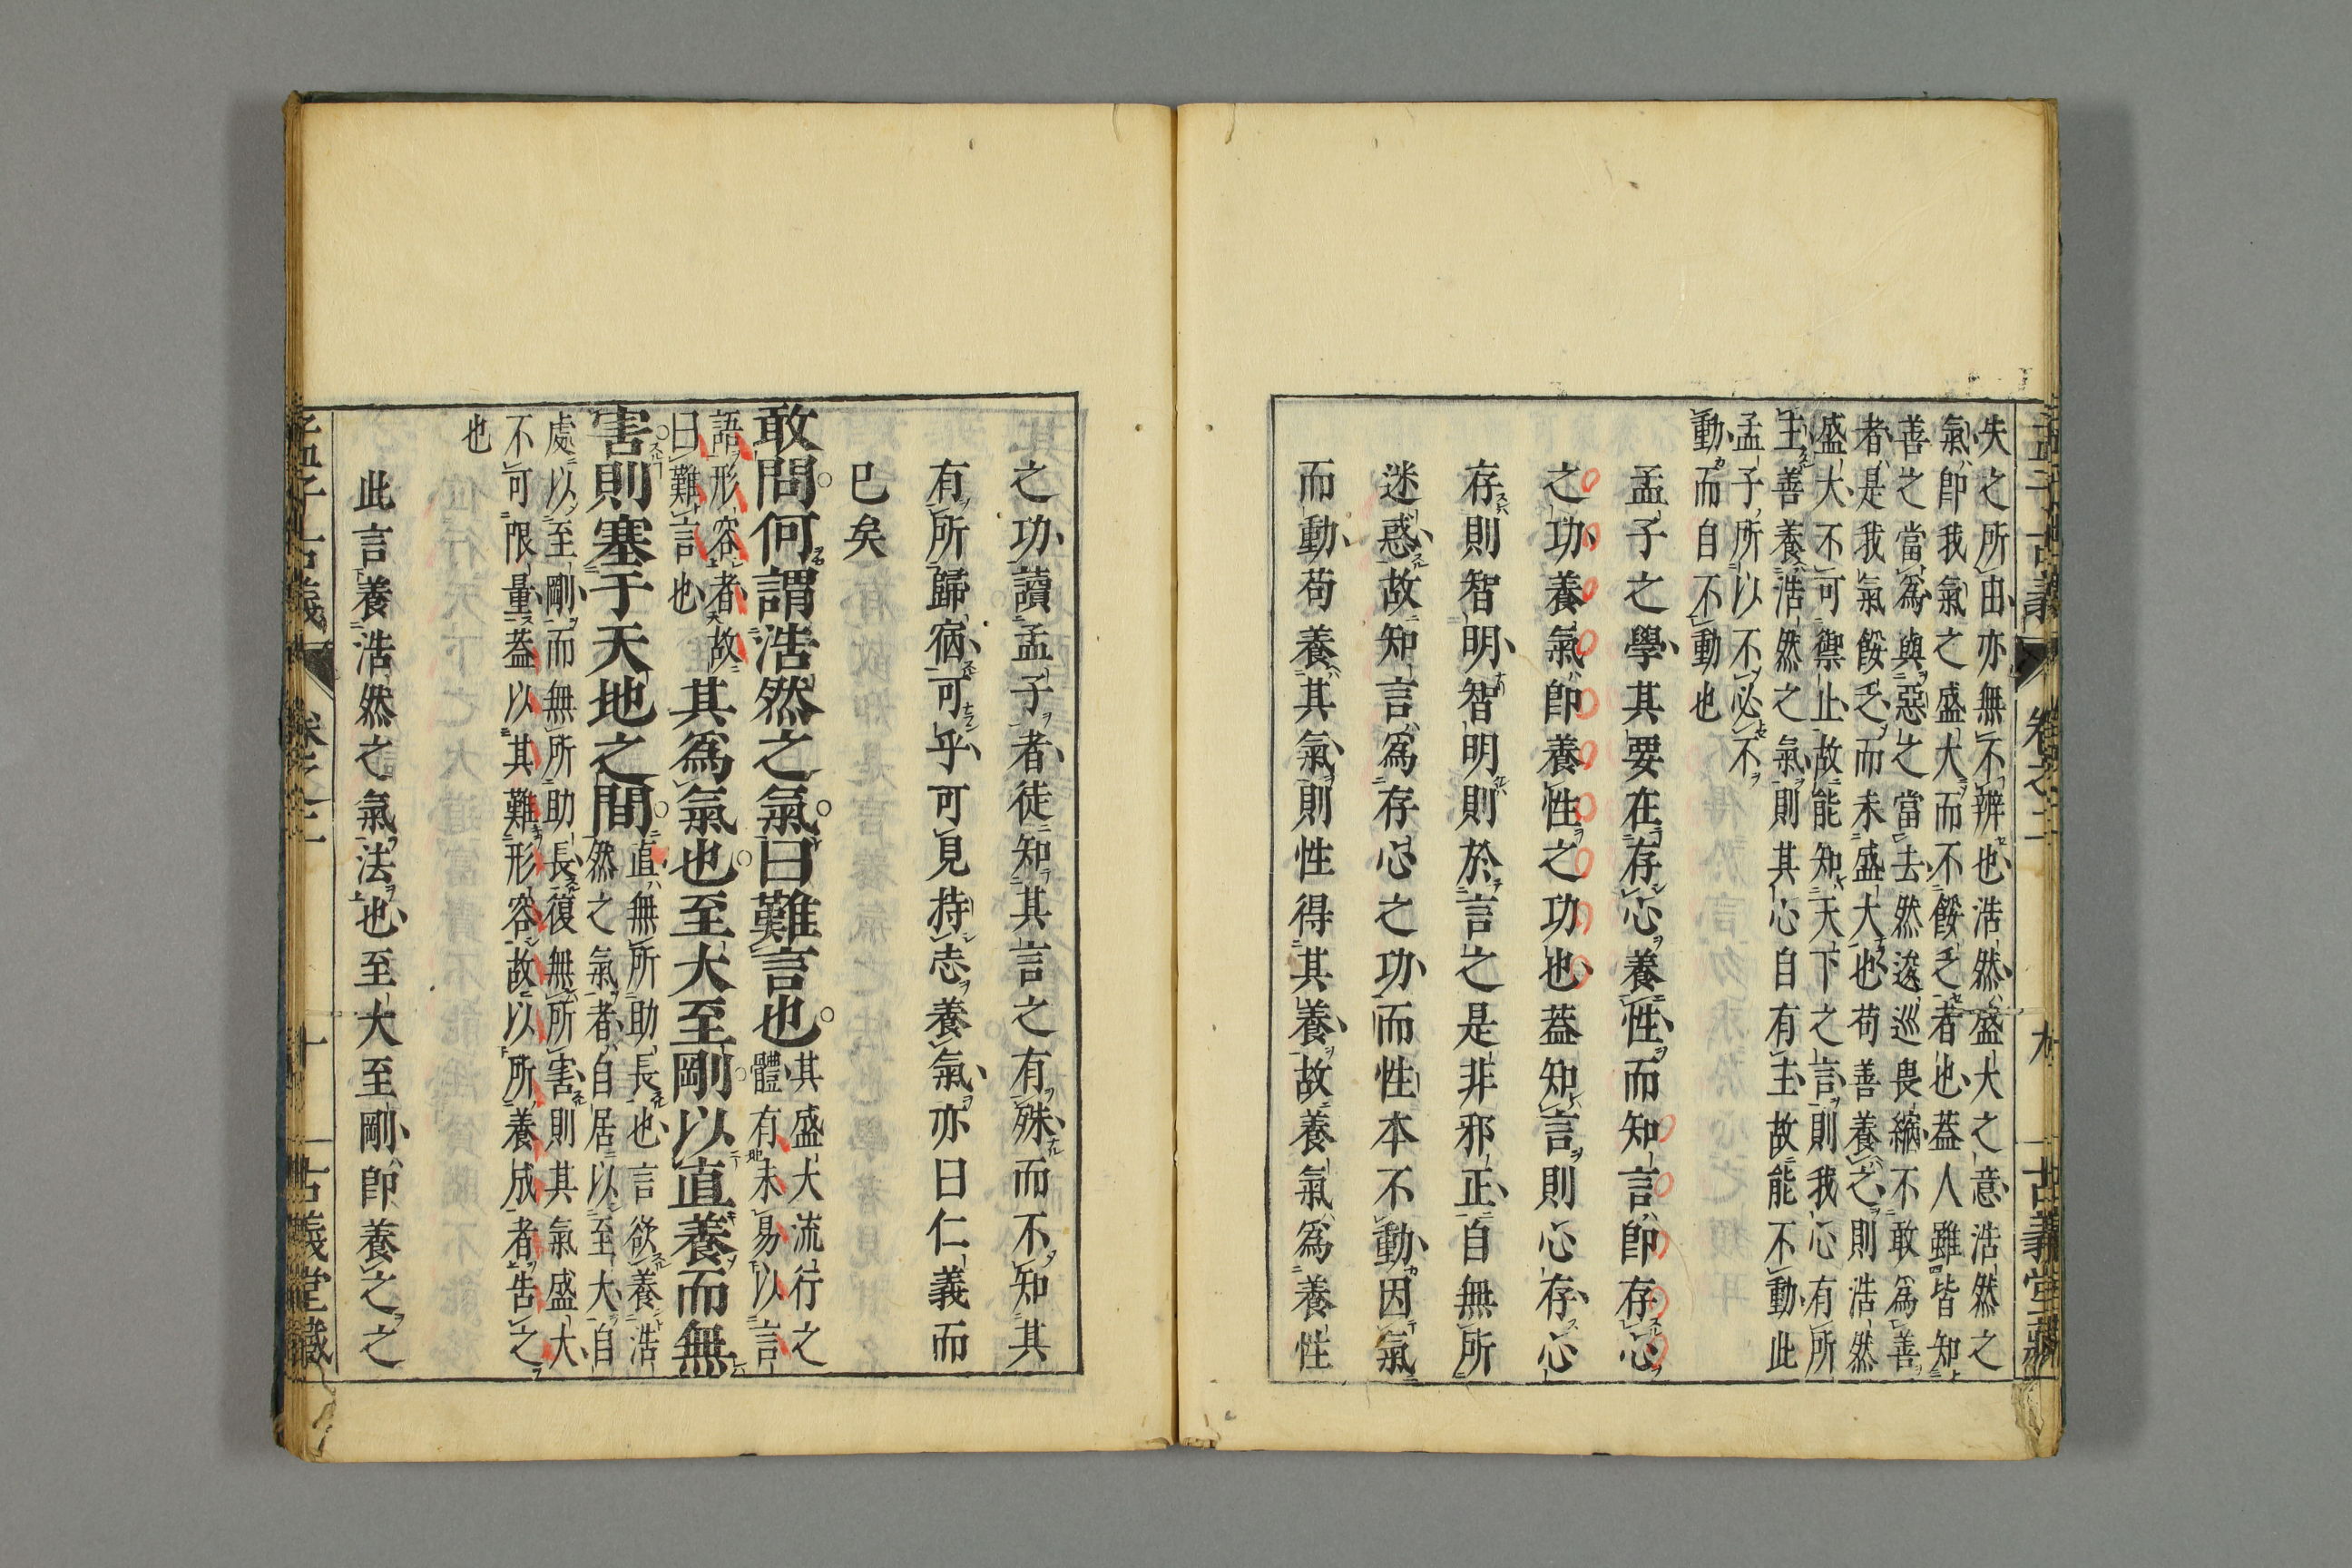 失之所由亦無不辨也浩然盛大之意浩然之
氣卽我氣之盛大而不餒乏者也蓋人雖皆知
善之當爲與惡之當去然逡巡畏縮不敢爲善
者是我氣餒乏而未盛大也苟善養之則浩然
盛大不可禦止故能知天下之言則我心有所
主善養浩然之氣則其心自有主故能不動此
孟子所以不必不
動而自不動也
孟子之學其要在存心養性而知言卽存心
之功養氣卽養性之功也蓋知言則心存心
存則智明智明則於言之是非邪正自無所
迷惑故知言爲存心之功而性本不動因氣
而動苟養其氣則性得其養故養氣爲養性
之功讀孟子者徒知其言之有殊而不知其
有所歸宿可乎可見持志養氣亦曰仁義而
已矣
敢問何謂浩然之氣曰難言也
其盛大流行之
體有未易以言
語形容者故
曰難言也
其爲氣也至大至剛以直養而無
害則塞于天地之間
直無所助長也言欲養浩
然之氣者自居以至大自
處以至剛而無所助長復無所害則其氣盛大
不可限量蓋以其難形容故以所養成者告之
也
此言養浩然之氣法也至大至剛卽養之之
孟子古義 卷之二 九 古義堂藏
孟子古義 卷之二 十 古義堂藏